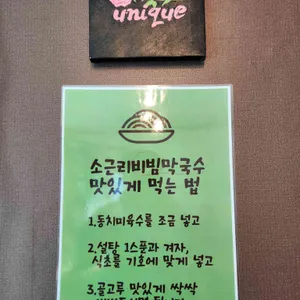 unique
소근리비빔막국수
맛있게 먹는 법
1.동치미육수를 조금 넣고
2.설탕 1스푼과 겨자,
식초를 기호에 맞게 넣고
3.골고루 맛있게 싹싹